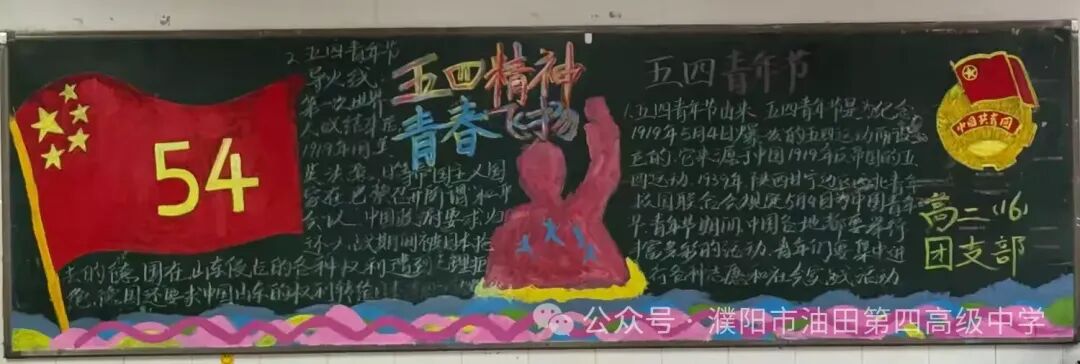 54
2.五四青年节
导火线:
第一次世界
大战结束后
1919年1月至
五四精神
青春飞扬
五四青年节
1.五四青年节由来:五四青年节是为纪念
1919年5月4日爆发的五四运动而设
立的,它来源于中国1919年反帝国的五
四运动,1939年,陕西甘宁边区西北青年
救国联合会规定5月4日为中国青年
节.青年节期间,中国各地都要举行
丰富多彩的活动,青年们要集中进
行各种志愿和社会实践活动
会议,中国政府要求归
还大战期间被日本抢
去的德国在山东侵占的各种权利遭到
中国共青团
高二(16)
团支部
公众号·濮阳市油田第四高级中学